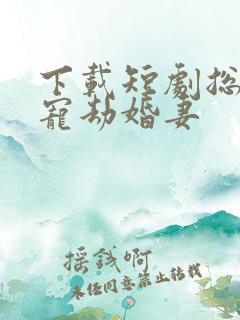 下載短劇総
寵劫婚妻
採錢啊
未经同意禁止转载